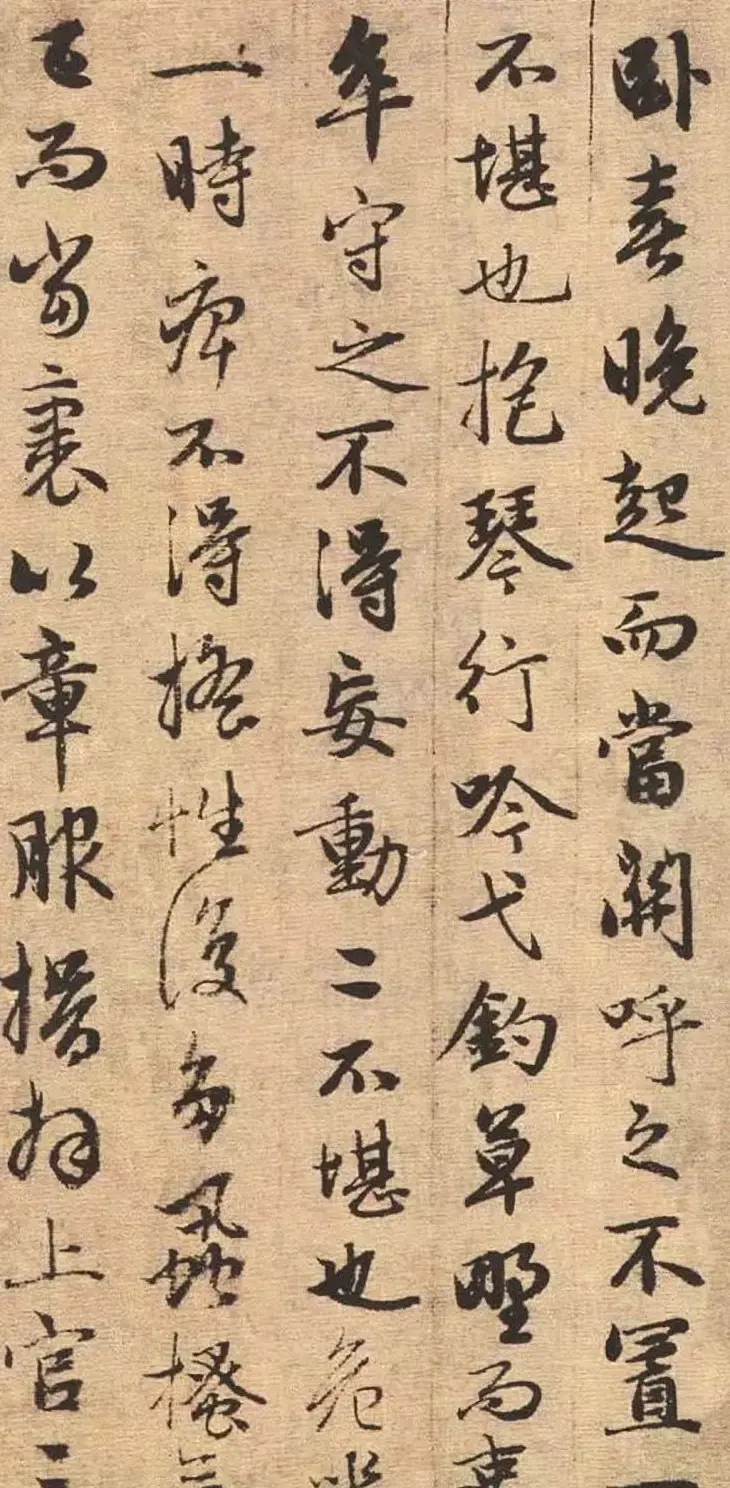 卧喜晚起而當關呼之不置一
不堪也抱琴行吟弋釣草野而吏
卒守之不得妄動二不堪也危坐
一時痹不得搖性復多虱搔無
已而當裹以章服揖拜上官三